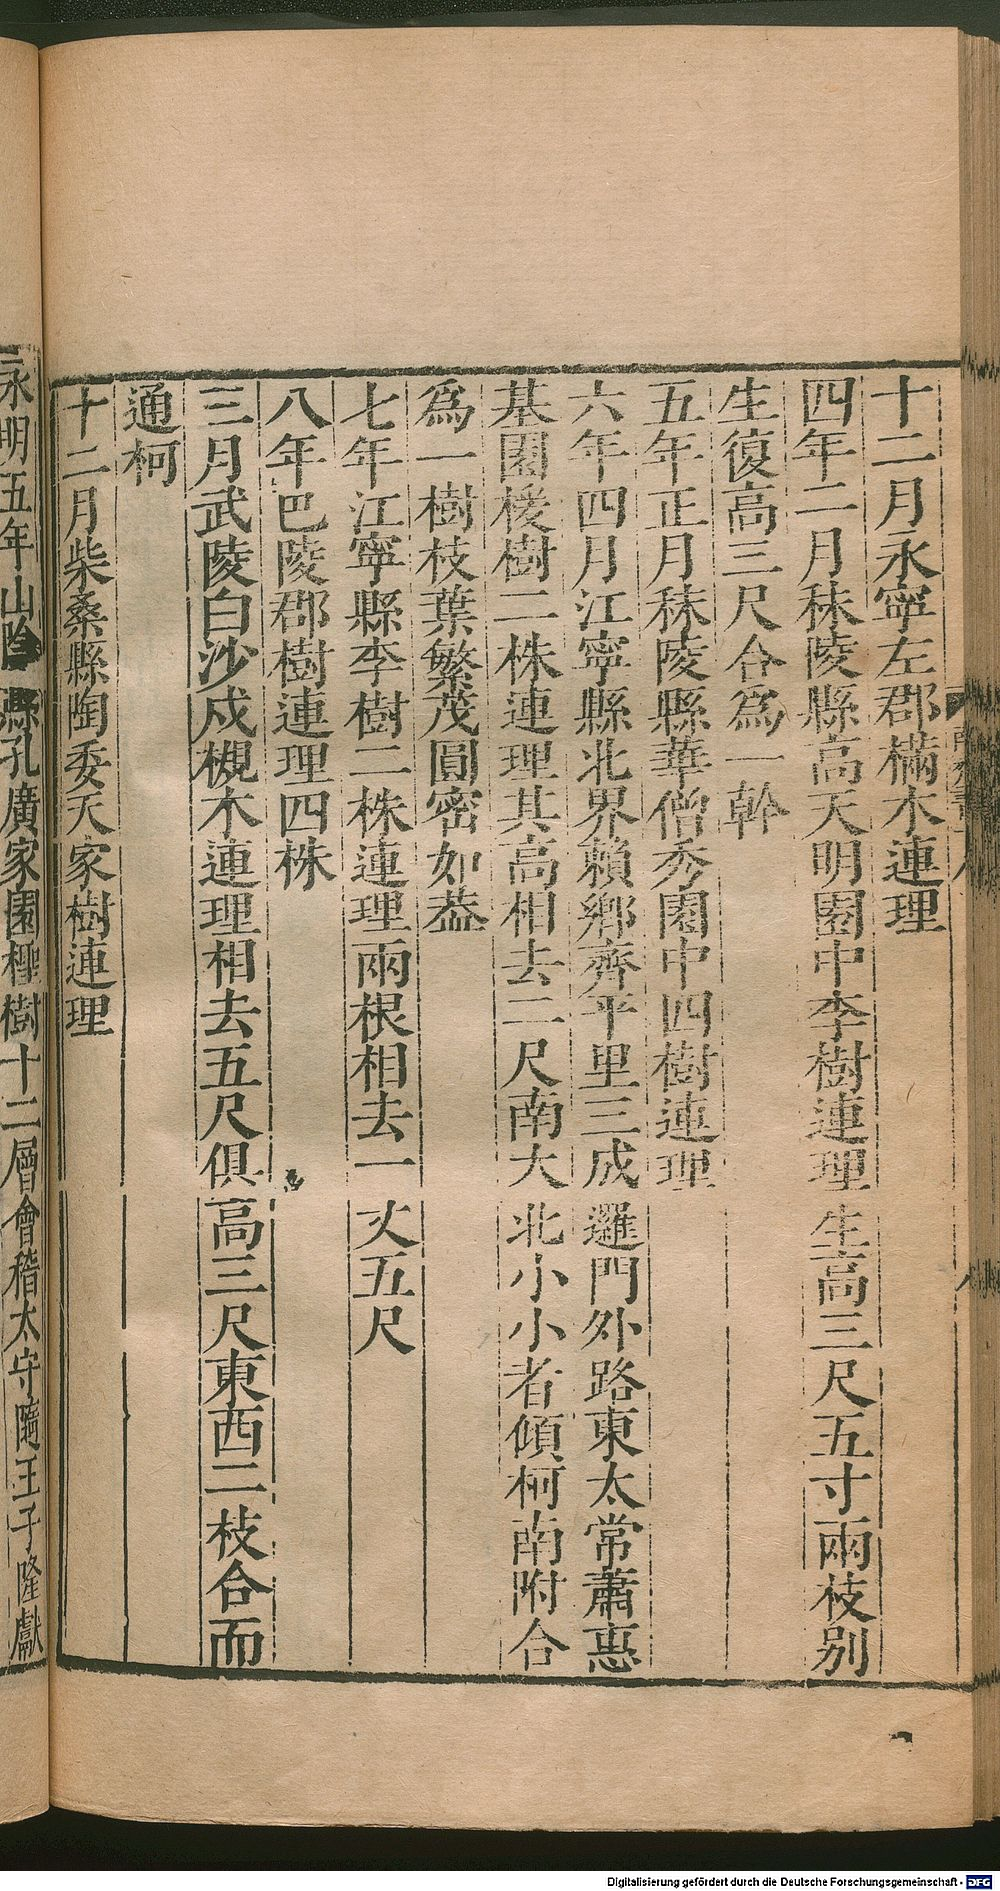 十二月永寧左郡樠木連理
四年二月秣陵縣高天明園中李樹連理生高三尺五寸兩枝别
生復高三尺合爲一幹
五年正月秣陵縣華僧秀園中四樹連理
六年四月江寧縣北界賴鄉齊平里三成邏門外路東太常蕭惠
基園楥樹二株連理其高相去二尺南大北小小者傾柯南附合
爲一樹枝葉繁茂圓密如葢
七年江寧縣李樹二株連理兩根相去一丈五尺
八年巴陵郡樹連理四株
三月武陵白沙戍槻木連理相去五尺俱高三尺東西二枝合而
通柯
十二月柴桑縣陶委天家樹連理
永明五年山陰縣孔廣家園檉樹十二層會稽太守隨王子隆獻
Digitalisierung gefördert durch die Deutsche Forschungsgemeinschaft - DFG